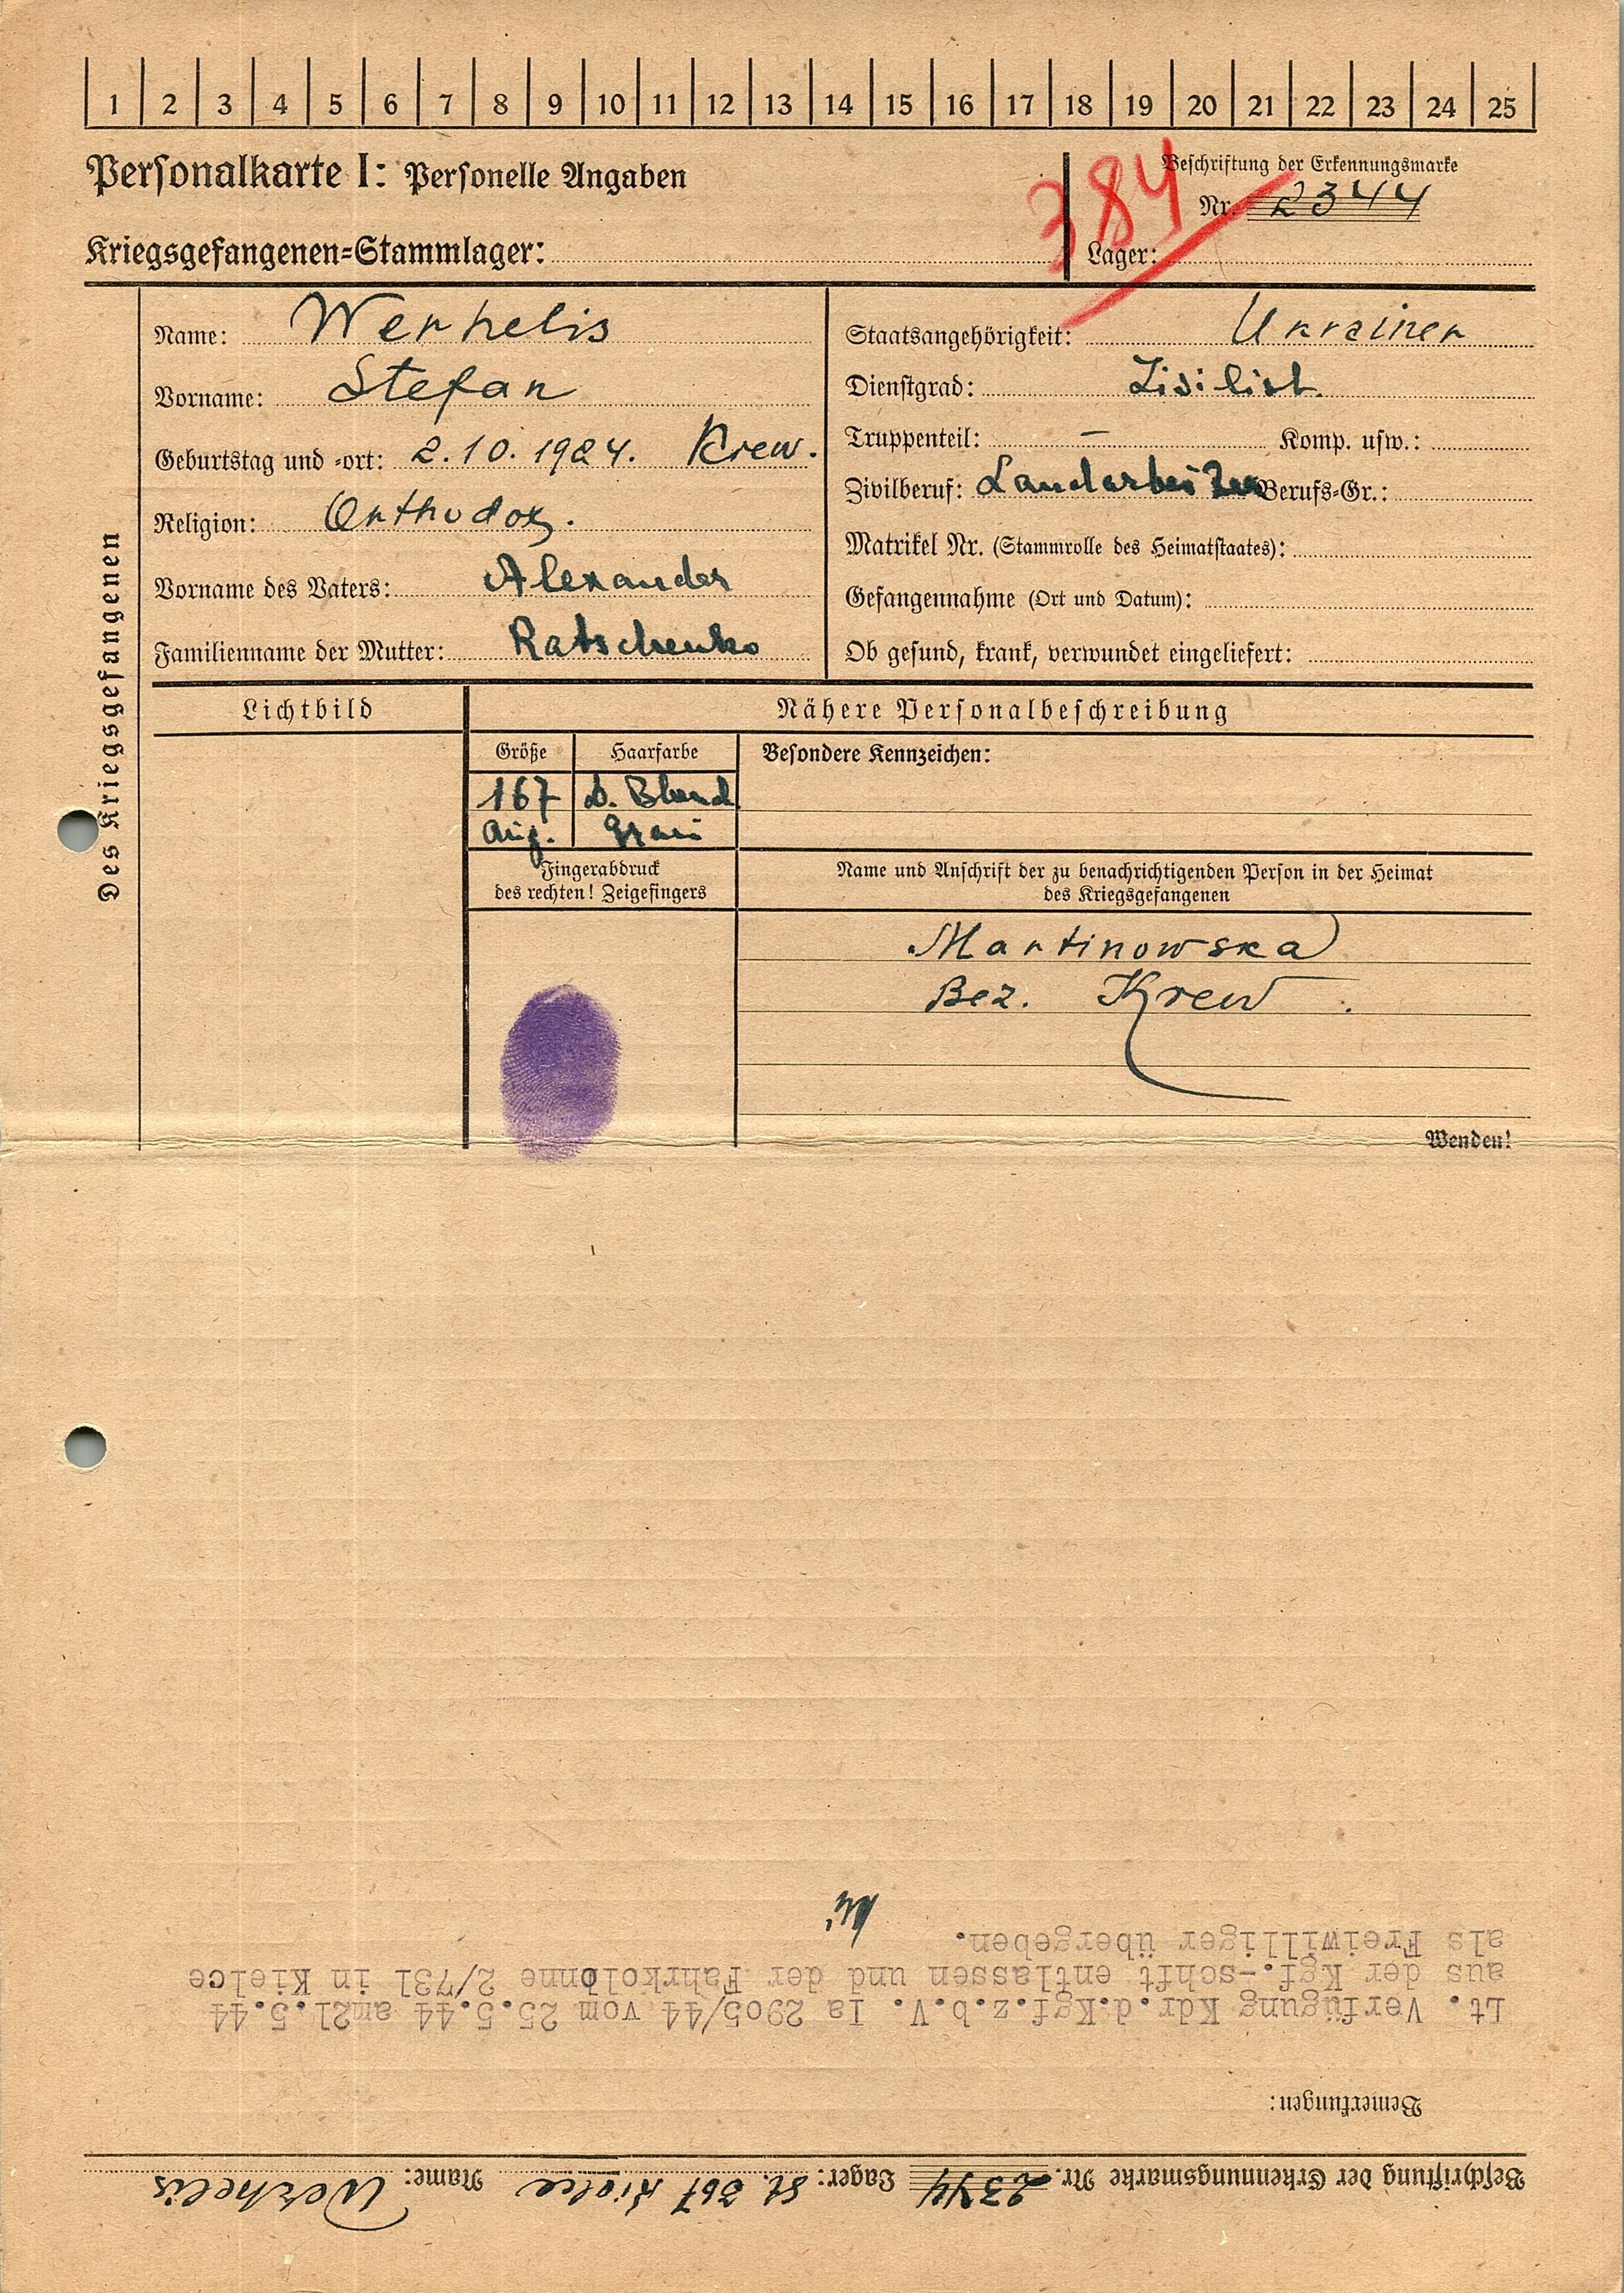 1 2 3 4 5 6 7 8 9 10 11 12 13 14 15 16 17 18 19 20 21 22 23 24 25
Personalkarte I: Personelle Angaben
Beschriftung der Erkennungsmarke
Nr. 2344
384
Kriegsgefangenen=Stammlager:
Lager:
Des Kriegsgefangenen
Name: Werhelis
Vorname: Stefan
Geburtstag und =ort: 2.10.1924. Krew.
Religion: Orthodox.
Vorname des Vaters: Alexander
Familienname der Mutter: Ratschenko
Staatsangehörigkeit: Ukrainer
Dienstgrad: Zivilist.
Truppenteil: – Komp. usw.:
Zivilberuf: Landarbeiter Berufs=Gr.:
Matrikel Nr. (Stammrolle des Heimatstaates):
Gefangennahme (Ort und Datum):
Ob gesund, krank, verwundet eingeliefert:
Lichtbild
Nähere Personalbeschreibung
Größe Haarfarbe Besondere Kennzeichen:
167 D. Blond
Aug. Grau
Fingerabdruck
des rechten! Zeigefingers
Name und Anschrift der zu benachrichtigenden Person in der Heimat
des Kriegsgefangenen
Martinowska
Bez. Krew.
Wenden!
Beschriftung der Erkennungsmarke Nr. 2344 Lager: St. 367 Kielce Name: Werhelis
Bemerkungen:
Lt. Verfügung Kdr.d.Kgf.z.b.V. Ia 2905/44 vom 25.5.44 am21.5.44
aus der Kgf.-schft entlassen und der Fahrkolonne 2/731 in Kielce
als Freiwilliger übergeben.